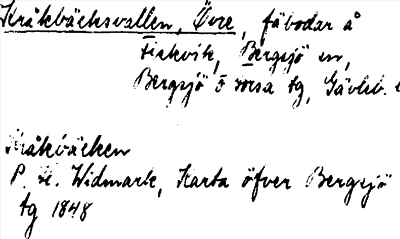 Kråkbäcksvallen, Övre, fäbodar å
Fiskvik, Bergsjö sn,
Bergsjö o tg, Gävleb.
Kråkbäcken
P. H. Widmark, Karta öfver Bergsjö
tg 1848